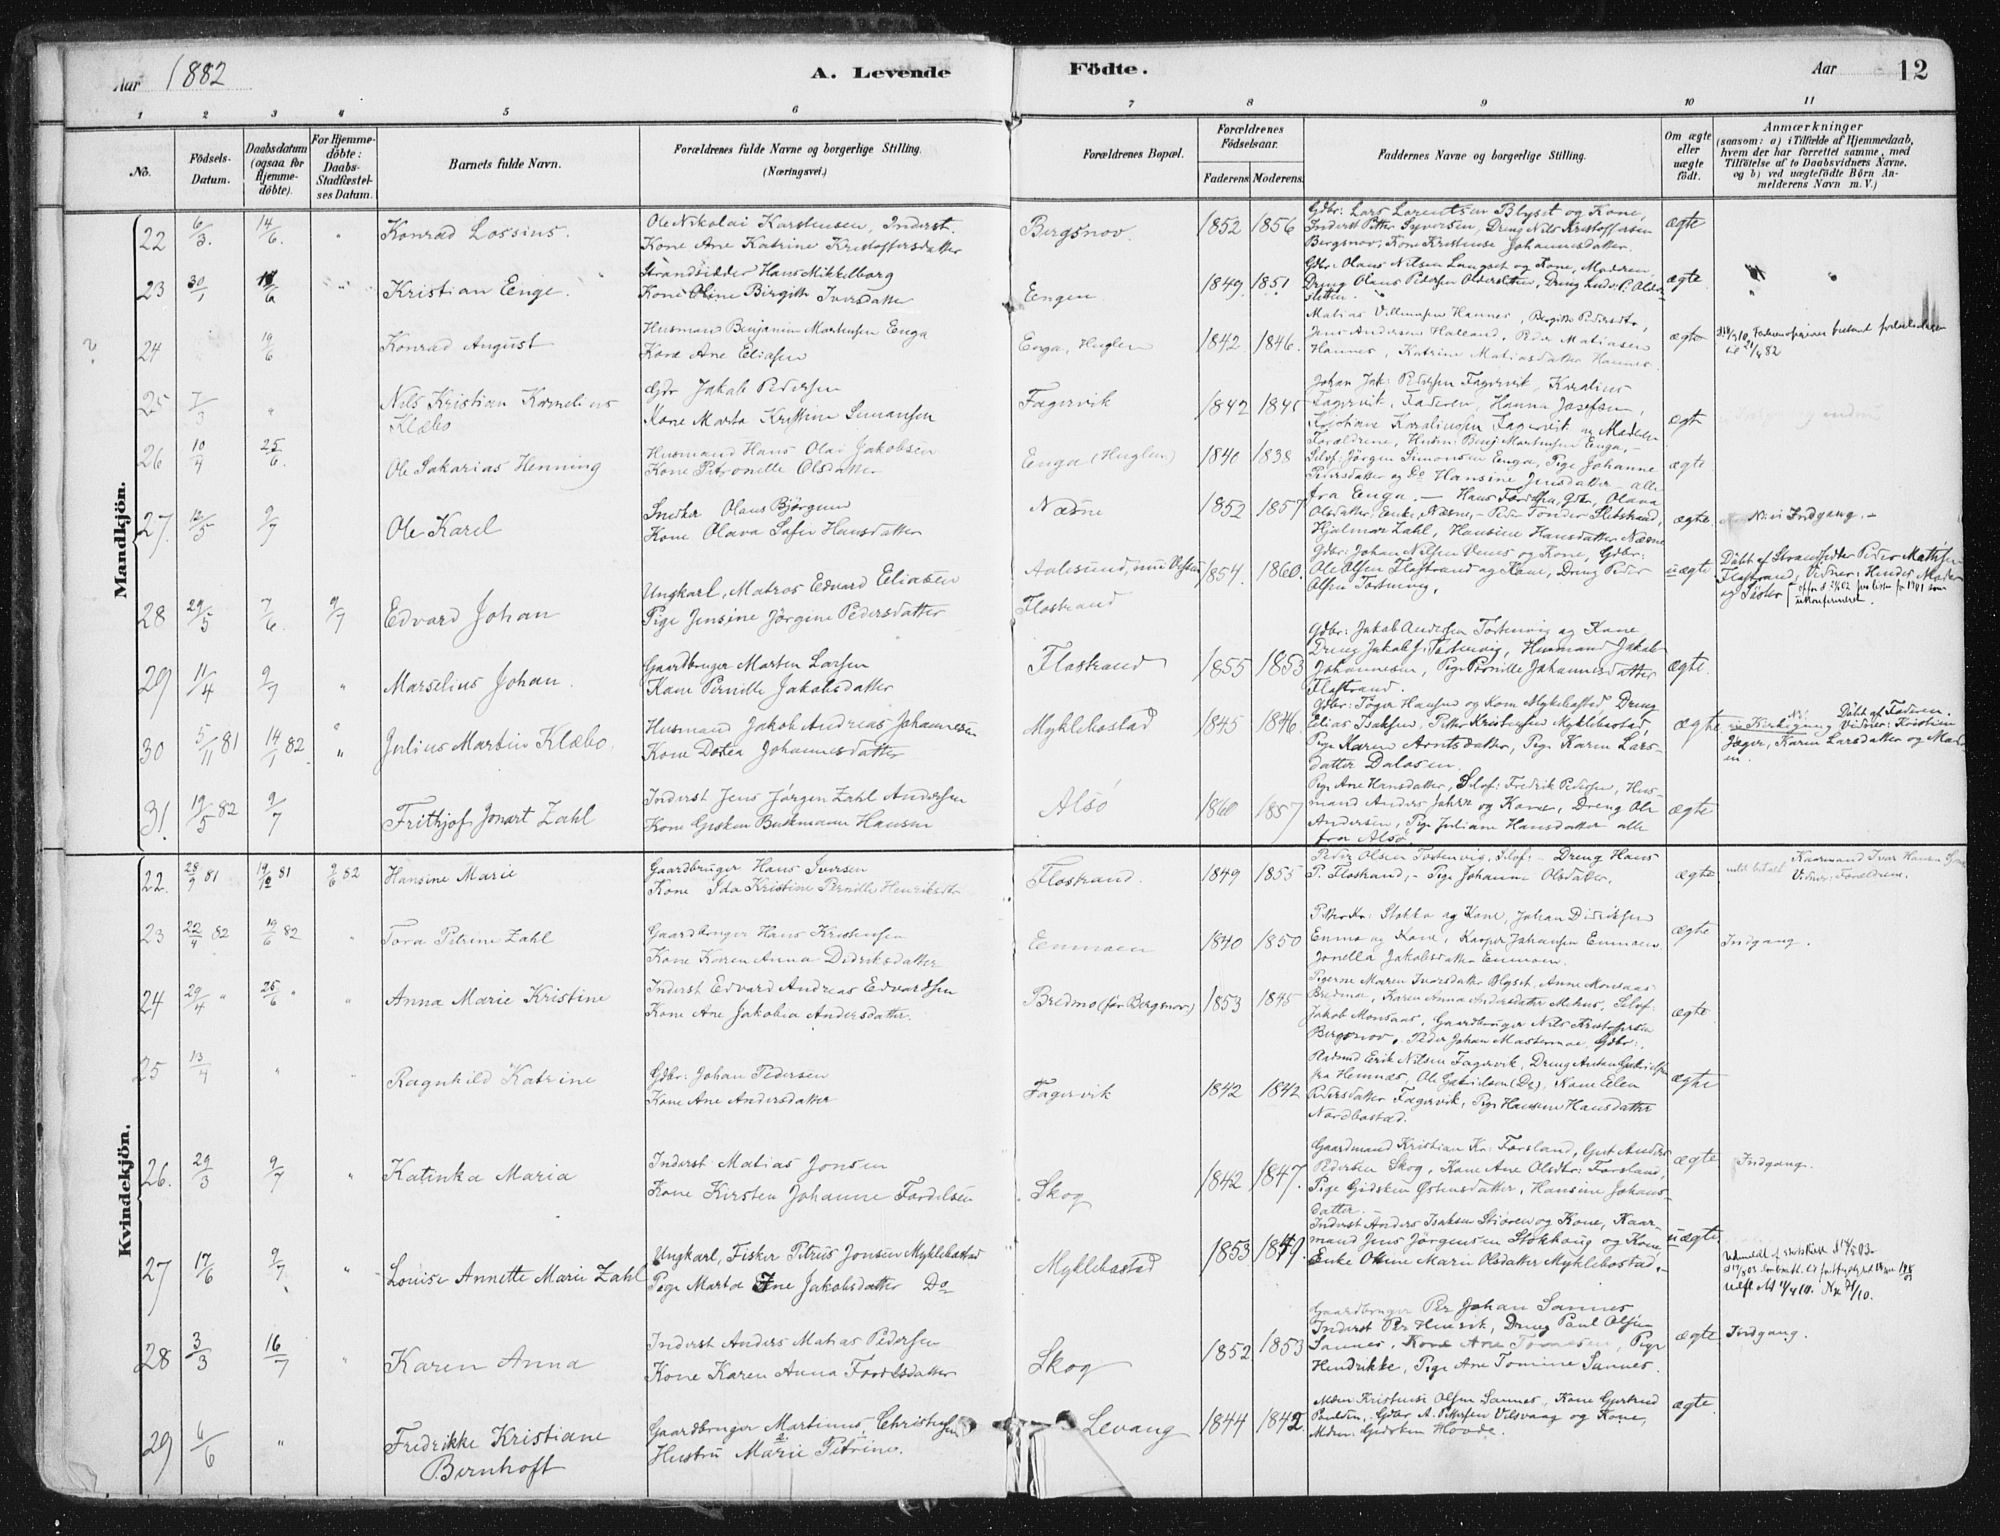 Aar 1882
A. Levende
Födte.
Aar
12
1 2 3 4 5 6 7 8 9 10 11
No.
Födsels-Datum.
Daabsdatum (ogsaa for Hjemmedöbte).
For Hjemmedöbte: Daabs-Stadfæstelses Datum.
Barnets fulde Navn.
Forældrenes fulde Navne og borgerlige Stilling. (Næringsvei.)
Forældrenes Bopæl.
Forældrenes Födselsaar.
Faderens. Moderens.
Faddernes Navne og borgerlige Stilling.
Om ægte eller uægte födt.
Anmærkninger
(saasom: a) i Tilfælde af Hjemmedaab, hvem der har forrettet samme, med Tilföielse af to Daabsvidners Navne, og b) ved uægtefödte Börn Anmelderens Navn m. V.)
Mandkjön.
22 6/3. 14/6. " Konrad Lossius.
Ole Nikolai Karstensen, Inderst.
Kone Ane Katrine Kristoffersdatter
Bergsnov. 1852 1856
Gdbr: Lars Lorentsen Blyset og Kone,
Inderst Petter Syversen, Dreng Nils Kristoffersen
Bergsnov, Kone Kristense Johannesdatter.
ægte
23 30/1 Kristian Enge.
Strandsidder Hans Mikkelborg
Kone Oline Birgitte Iversdatter
Engen 1849. 1851
Gdbr: Olaus Nilsen Langset og Kone, Moderen,
Dreng Olaus Pedersen
ægte.
24 19/6 Konrad August
Husmand Benjamin Martinsen Enga
Kone Ane Eliasen
Enga, Huglen 1842 1846.
Jens Andersen Halland, Peder Matiasen
Hannes, Katrine Matiasdatter Hannes.
ægte
25 7/3 " Nils Kristian Kornelius
Klæbo
Gdr Jakob Pedersen
Kone Marta Kristine Simonsen
Fagervik 1842 1845
Johan Jak: Pedersen Fagervik, Karolius
Fagervik, Faderen, Hanna Josefsen,
Kristiane Karoliussen Fagervik og Moderen
ægte
26 10/4 25/6. Ole Sakarias Henning
Husmand Hans Olai Jakobsen
Kone Petronelle Olsdatter
Enga (Huglen) 1840 1838
Forældrene, Husm: Benj Martinsen Enga,
Selvf: Jörgen Simonsen Enga, Pige Johanne
Pedersdatter og Do Hansine Jensdatter – alle
fra Enga.
ægte
27. 12/5 9/7 Ole Karel
Snedker Olaus Björgum
Kone Olava Sofie Hansdatter
Næsne 1852 1857
Olsdatter, Enke, Næsne, – Peder Tonder
Hjalmar Zahl, Hansine Hansdatter Næsne
ægte
Indgang. –
28 29/5 7/6. 9/7 Edvard Johan
Ungkarl, Matros Edvard Eliasen
Pige Jensine Jörgine Pedersdatter
Aalesund, nu
Flostrand
1854. 1860.
Gdbr: Johan Nilsen Venes og Kone, Gdbr:
Ole Olsen Flostrand og Kone, Dreng Peder
Olsen Tortenvig.
uægte
Döbt af Strandsidder Peder Mathisen
Flostrand, Vidner: Hendes Moder
29 11/4 9/7 " Marselius Johan.
Gaardbruger Morten Larsen
Kone Pernille Jakobsdatter
Flostrand 1855 1853
Gdbr: Jakob Andersen Tortenvig og Kone
Dreng Jakob J: Tortenvig, Husmand Jakob
Johannesen, Pige Pernille Johannesdatter
Flostrand.
ægte.
30 5/11 81 14/1 82. " Julius Martin Klæbo.
Husmand Jakob Andreas Johannesen
Kone Dotea Johannesdatter
Myklebostad 1845 1846.
Gdbr: Töger Hansen og Kone Myklebostad, Dreng
Elias Isaksen, Petter Kristensen Myklebostad,
Pige Karen Arntsdatter, Pige Karen Lars-
datter Dalosen.
ægte
Döbt af Faderen.
Vidner: Kristian
Jæger, Karen Larsdatter og Moder
en.
31. 19/5 82 9/7 Frithjof Jonart Zahl
Inderst Jens Jörgen Zahl Andersen
Kone Gisken Buckmann Hansen
Alsö 1860 1857
Pige Ane Hansdatter, Selvf: Fredrik Pedersen, Hus-
mand Anders Jahr og Kone, Dreng Ole
Andersen, Pige Juliane Hansdatter alle
fra Alsö.
ægte
Kvindekjön.
22. 28/9 81 19/12 81 9/6 82 Hansine Marie
Gaardbruger Hans Iversen
Kone Ida Kristine Pernille Henriksdtr
Flostrand. 1849 1855
Peder Olsen Tortenvig, Selvf: – Dreng Hans
P. Flostrand, – Pige Johanne Olsdatter.
ægte
Vidner: Forældrene.
23 22/4 82 19/6 82 " Tora Petrine Zahl
Gaardbruger Hans Kristensen
Kone Karen Anna Didriksdatter
Enmoen 1840 1850
Petter Kr: Stokka og Kone, Johan Didriksen
Enmo og Kone, Kasper Johansen Enmoen
Jonella Jakobsdatter Enmoen.
ægte
Indgang.
24 29/4 " 25/6 " " Anna Marie Kristine
Inderst Edvard Andreas Edvardsen
Kone Ane Jakobia Andersdatter.
Bredmo (før Bergsnov) 1853 1845
Pigerne Maren Ivarsdatter Blyset, Anne Monsaas
Bredmoe, Karen Anna Andersdatter Mehus, Selvf:
Jakob Monsaas, Gaardbruger Nils Kristoffersen
Bergsnov, Peder Johan Mastermoe, Gdbr:.
ægte.
25 13/4 " Ragnhild Katrine
Gdbr: Johan Pedersen
Kone Ane Andersdatter
Fagervik 1842 1842
Erik Nilsen Fagervik, Dreng Anton Gabrielsen
fra Hemnes, Ole Gabrielsen (Do), Kone Elen
Pedersdatter Fagervik, Pige Hansine Hansdatter
Nordbostad.
ægte
26. 29/3 9/7 " Katinka Maria
Inderst Matias Jonsen
Kone Kirsten Johanne Fordelsen
Skog 1842 1847.
Gaardmand Kristian Kr: Forsland, Gut Anders
Pedersen Skog, Kone Ane Olsdtr: Forsland,
Pige Gidsken Østensdatter, Hansine Johans-
datter.
ægte
Indgang.
27 17/6 9/7. " Louise Annette Marie Zahl
Ungkarl, Fisker Petrus Jonsen Myklebostad
Pige Marta Jakobsdatter Do
Myklebostad 1853 1849.
Inderst Anders Isaksen Stioren og Kone, Kaar-
mand Jens Jörgensen Stokhaug og Kone,
Enke Oline Marie Olsdatter Myklebostad. –
uægte
28 3/3 16/7 " Karen Anna
Inderst Anders Matias Pedersen
Kone Karen Anna Fordelsdatter
Skog 1852 1853
Gaardbruger Per Johan Sannes,
Inderst Per Henrik, Dreng Paul Olsen
Sannes, Kone Ane Tomesen, Pige
Hendrikke, Pige Ane Tomine Sannes.
ægte
Indgang.
29 6/6 " Fredrikke Kristiane
Bernhoft
Gaardbruger Martinus Christensen
Hustru Marie Petrine.
Levang 1844 1842
Kristense Olsen Sannes, Kone Gjertrud
Paulsen, Gdbr A. Pettersen Vilsvaag og Kone,
Gidsken Hovde.
ægte.